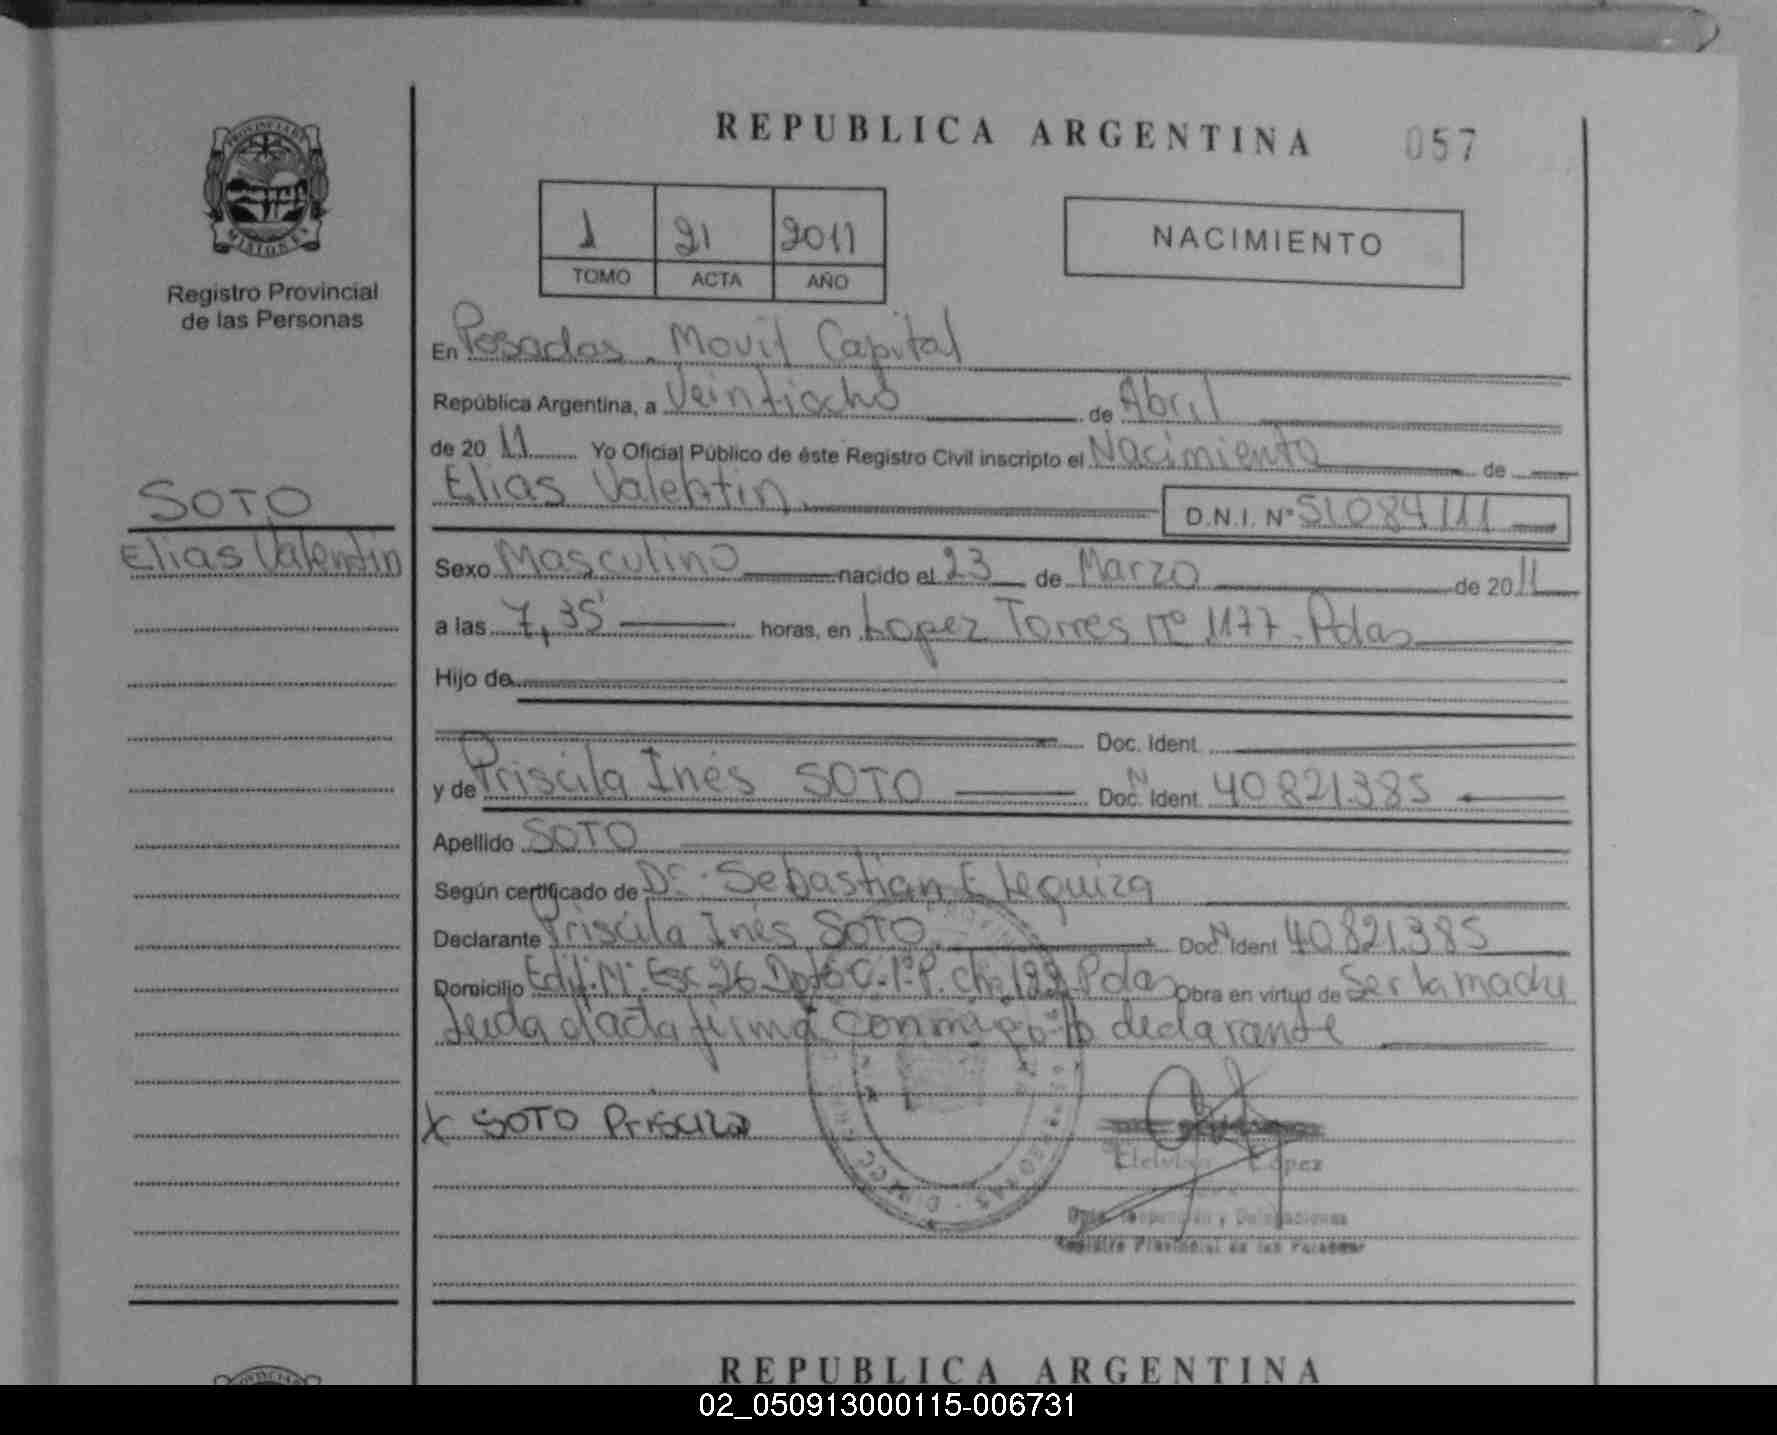 REPUBLICA ARGENTINA 057
PROVINCIA DE MISIONES
Registro Provincial
de las Personas
1 21 2011
TOMO ACTA AÑO
NACIMIENTO
En Posadas. Movil Capital
República Argentina, a Veintiocho de Abril
de 20 11 Yo Oficial Público de éste Registro Civil inscripto el Nacimiento de
Elias Valentin. D.N.I. N° 51084111
SOTO
Elias Valentin
Sexo Masculino nacido el 23 de Marzo de 20 11
a las 7,35' horas, en Lopez Torres N° 1177. Pdas
Hijo de
Doc. Ident.
y de Priscila Inés SOTO Doc. N Ident. 40821385
Apellido SOTO
Según certificado de Dr. Sebastian
Declarante Priscila Inés SOTO. Doc. N Ident 40821385
Domicilio Edif. M. Esc 26 Dpto C. 1° P. Ch. 122 Pdas Obra en virtud de Ser la madre
leida el acta firma conmigo la declarante
X SOTO Priscila
López
Registro Provincial de las Personas
REPUBLICA ARGENTINA
02_050913000115-006731